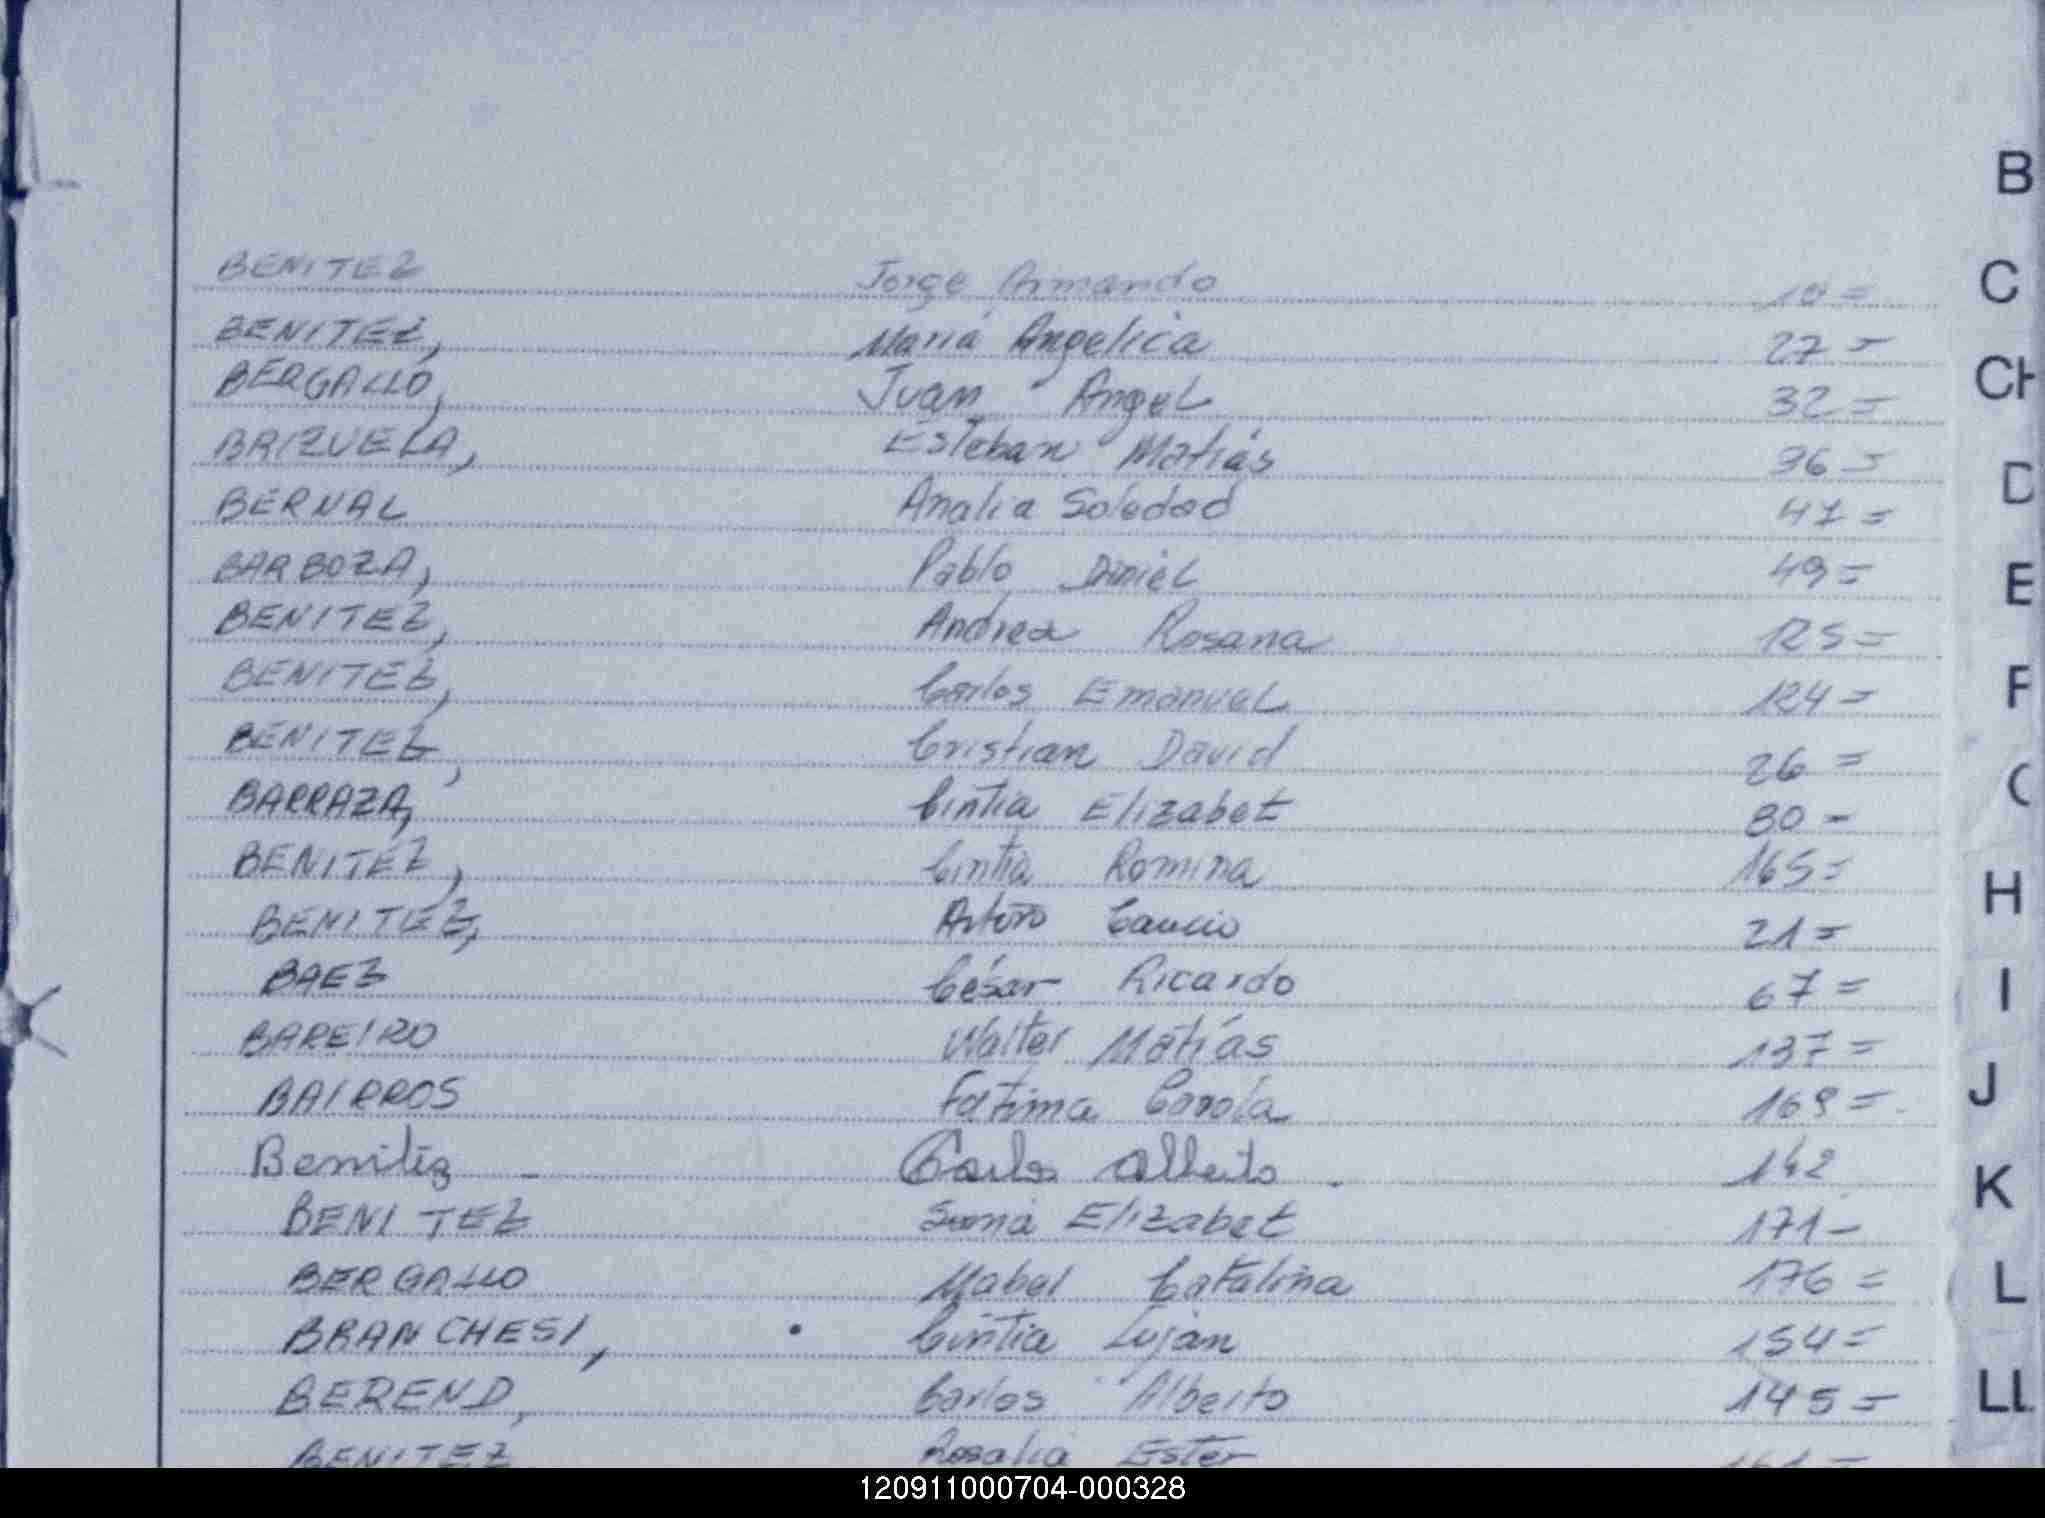 B
BENITEZ Jorge Armando 10 =
C
BENITEZ, Maria Angelica 27 =
BERGALLO, Juan Angel 32 =
CH
BRIZUELA, Esteban Matiás 36 =
D
BERNAL Analia Soledad 47 =
BARBOZA, Pablo Daniel 49 =
E
BENITEZ, Andrea Rosana 125 =
BENITEZ, Carlos Emanuel 124 =
F
BENITEZ, Cristian David 26 =
BARRAZA, Cintia Elizabet 80 -
BENITEZ, Cintia Romina 165 =
H
BENITEZ, Arturo 21 =
BAEZ César Ricardo 67 =
I
BAREIRO Walter Matías 137 =
BAIRROS Fatima Carola 169 =
J
Benitez - Carlos Alberto . 142
K
BENITEZ Elizabet 171 -
BERGALLO Mabel Catalina 176 =
L
BRANCHESI, Cintia Luján 154 =
BEREND, Carlos Alberto 145 =
LL
BENITEZ Rosalia Ester
120911000704-000328